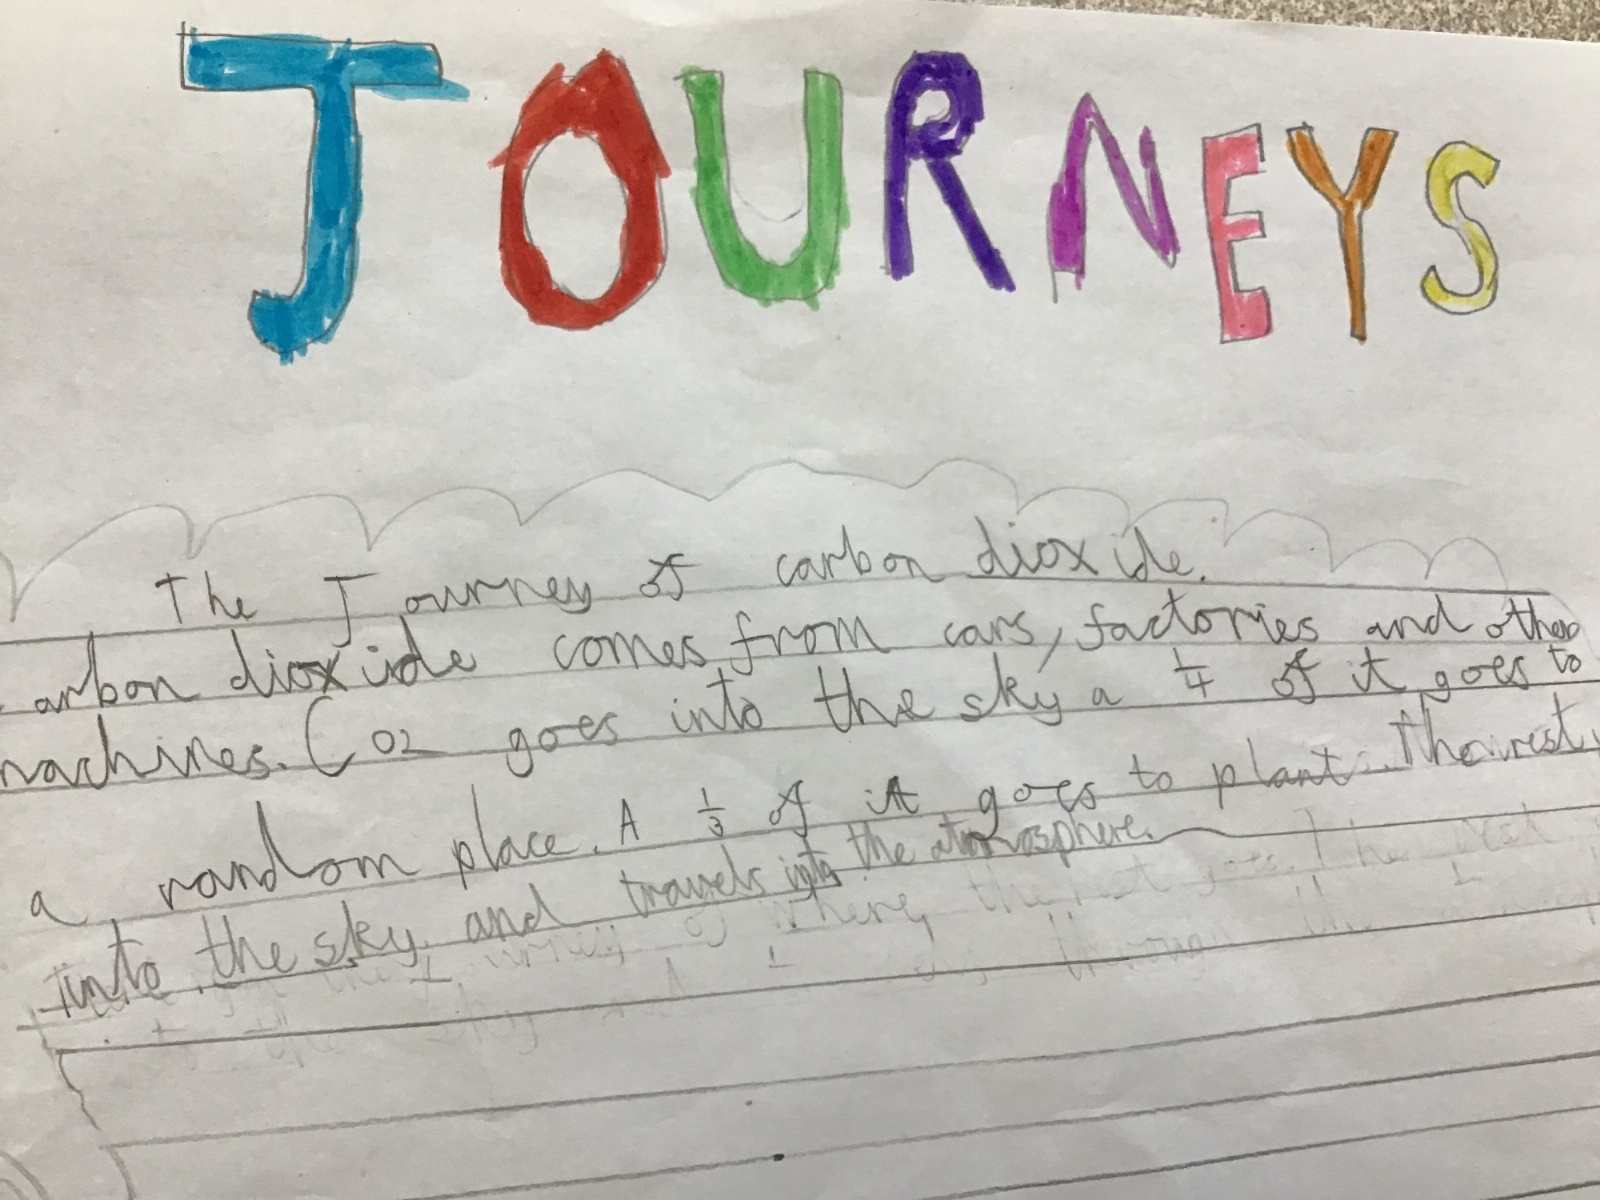 JOURNEYS
The Journey of carbon dioxide.
arbon dioxide comes from cars, factories and other
machines. CO2 goes into the sky a 1/4 of it goes to
a random place. A 1/3 of it goes to plants. The rest
into the sky and travels into the atmosphere.